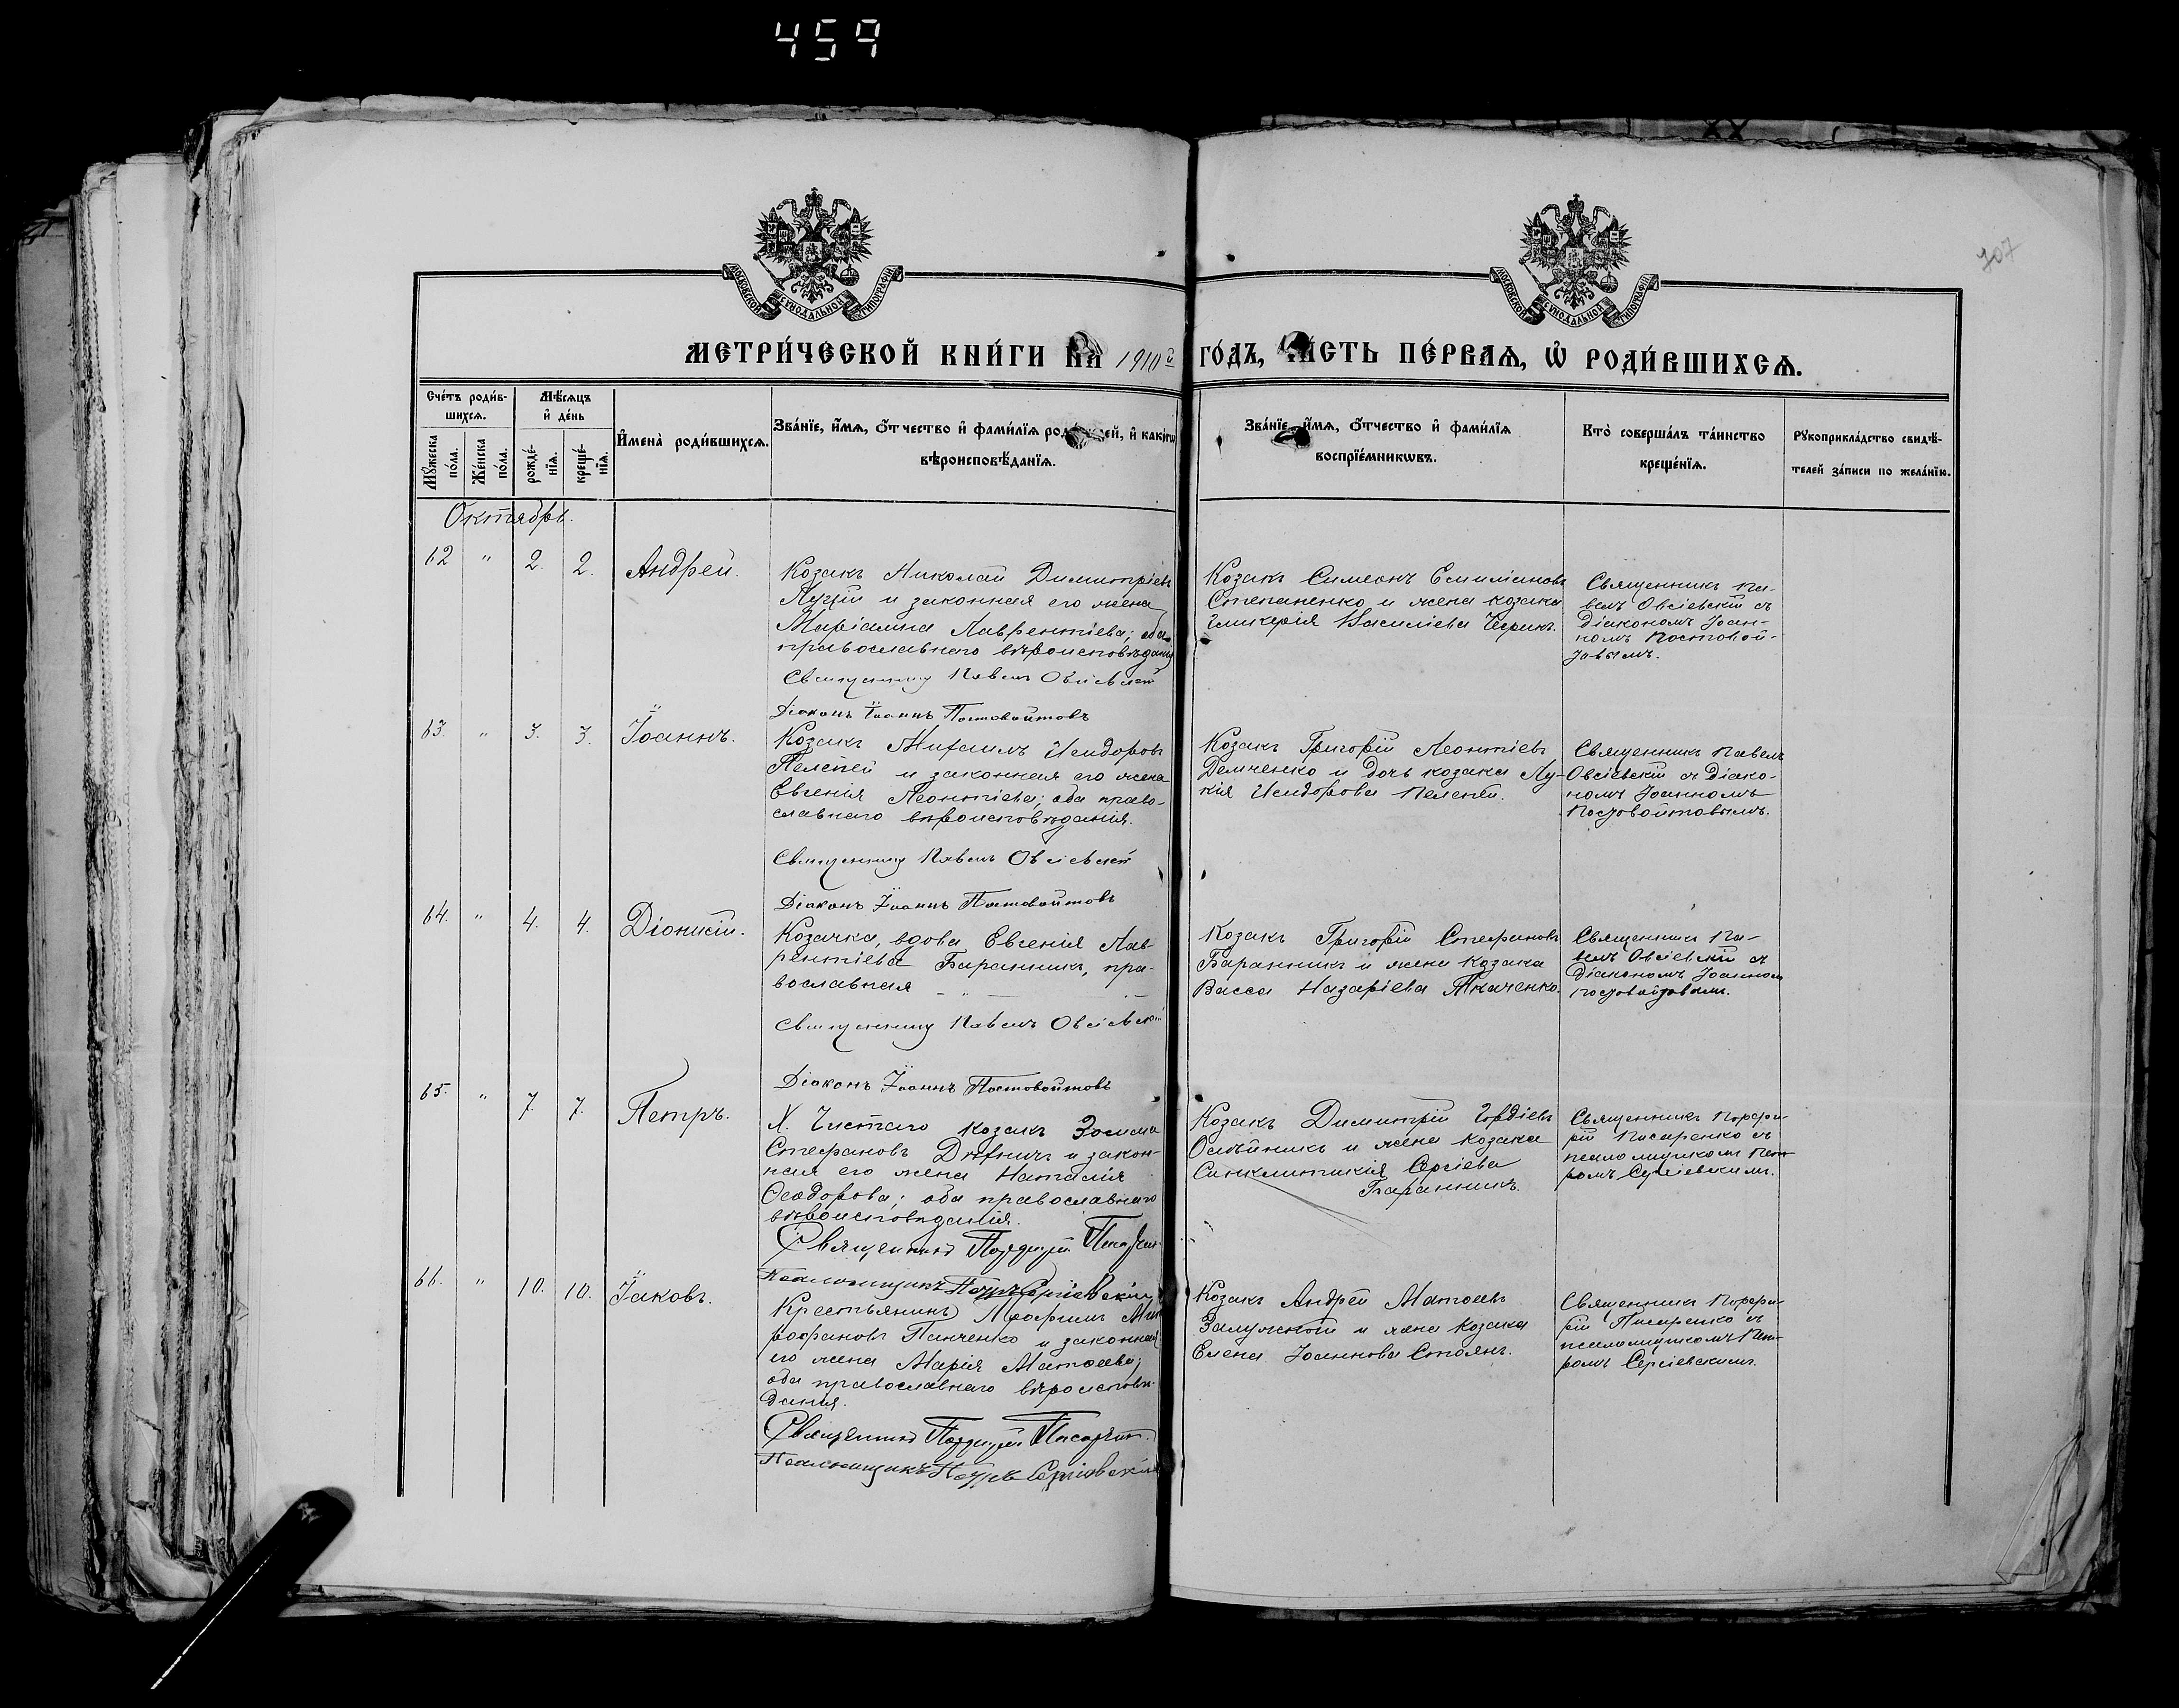 459
707
МОСКОВСКОЙ СѴНОДАЛЬНОЙ ТИПОГРАФІИ
МОСКОВСКОЙ СѴНОДАЛЬНОЙ ТИПОГРАФІИ
МЕТРИ́ЧЕСКОЙ КНИ́ГИ НА 1910й ГО́ДЪ, ЧА́СТЬ ПЕ́РВАѦ, Ѡ РОДИ́ВШИХСѦ.
Сче́тъ роди́в-
шихсѧ.
Мѣ́сѧцъ
и де́нь
Мꙋ́жеска
по́ла.
Же́нска
по́ла.
рожде́-
нїѧ.
креще́-
нїѧ.
И҆мена̀ роди́вшихсѧ.
Зва́нїе, и҆́мѧ, ѻ҆́тчество и҆ фами́лїѧ роди́телей, и҆ како́гѡ
вѣроисповѣ́данїѧ.
Зва́нїе, и҆́мѧ, ѻ҆́тчество и҆ фами́лїѧ
воспрїе́мникѡвъ.
Кто̀ соверша́лъ та́инство
креще́нїѧ.
Рꙋкоприкла́дство свидѣ́-
телей за́писи по жела́нїю.
Октябрь.
62 " 2. 2. Андрей.
Козакъ Николай Димитріевъ
Луцій и законная его жена
Маріамна Лаврентіева; оба
православнаго вѣроисповѣданія
Священникъ Павелъ Овсіевскій
Діаконъ Іоаннъ Постовойтовъ
Козакъ Симеонъ Емиліановъ
Степаненко и жена козака
Гликерія Василіева Черикъ.
Священникъ Па-
велъ Овсіевскій съ
діакономъ Іоан-
номъ Постовой-
товымъ.
63. " 3. 3. Іоаннъ.
Козакъ Михаилъ Исидоровъ
Пелепей и законная его жена
Евгенія Леонтіева; оба право-
славнаго вѣроисповѣданія.
Священникъ Павелъ Овсіевскій
Діаконъ Іоаннъ Постовойтовъ
Козакъ Григорій Леонтіевъ
Демченко и дочь козака Лу-
кія Исидорова Пелепей.
Священникъ Павелъ
Овсіевскій съ діако-
номъ Іоанномъ
Постовойтовымъ.
64. " 4. 4. Діонисій.
Козачка, вдова Евгенія Лав-
рентіева Баранникъ, пра-
вославная
Священникъ Павелъ Овсіевскій
Діаконъ Іоаннъ Постовойтовъ
Козакъ Григорій Стефановъ
Баранникъ и жена козака
Васса Назаріева Ткаченко.
Священникъ Па-
велъ Овсіевскій съ
діакономъ Іоанномъ
Постовойтовымъ.
65. " 7. 7. Петръ.
Х. Чистаго козакъ Зосима
Стефановъ Дѣхтичъ и закон-
ная его жена Наталія
Ѳеодорова; оба православнаго
вѣроисповѣданія.
Священникъ Порфирій Писаренко
Псаломщикъ Петръ Сергіевскій
Козакъ Димитрій Гордіевъ
Олѣйникъ и жена козака
Синклитикія Сергіева
Баранникъ.
Священникъ Порфи-
рій Писаренко съ
псаломщикомъ Пет-
ромъ Сергіевскимъ.
66. " 10. 10. Іаковъ.
Крестьянинъ Трофимъ Мит-
рофановъ Панченко и законная
его жена Марія Матѳеева;
оба православнаго вѣроисповѣ-
данія.
Священникъ Порфирій Писаренко
Псаломщикъ Петръ Сергіевскій
Козакъ Андрей Матѳеевъ
Залужный и жена козака
Елена Іоаннова Стоянъ.
Священникъ Порфи-
рій Писаренко съ
псаломщикомъ Пет-
ромъ Сергіевскимъ.